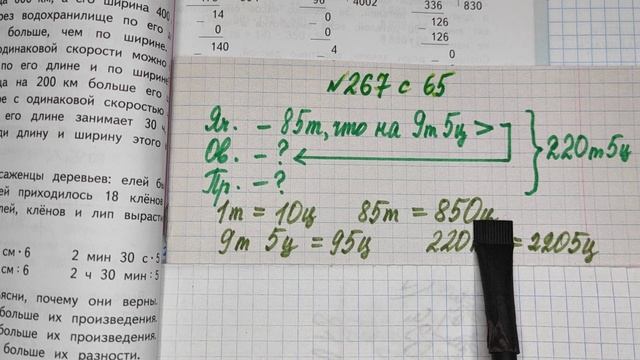 да 800 км, а его ширина 400
рез водохранилище по его
больше, чем по ширине.
одинаковой скорости можно
по его длине и по ширине
да на 200 км больше его
е с одинаковой скоростью
его длине занимает 30 ч
ди длину и ширину этого
саженцы деревьев: елей
ей приходилось 18 клёнов
лей, клёнов и лип вырасти
см · 6 2 мин 30 с · 5
см : 6 2 ч 30 мин : 5
ясни, почему они верны.
больше их произведения.
больше их произведения.
больше их разности.
14
0
140
96
0
4
4002
336
126
126
0
830
№267 с 65
Яч. – 85т, что на 9т 5ц >
Ов. – ?
Пр. – ?
220т5ц
1т = 10ц 85т = 850ц
9т 5ц = 95ц 220 = 2205ц